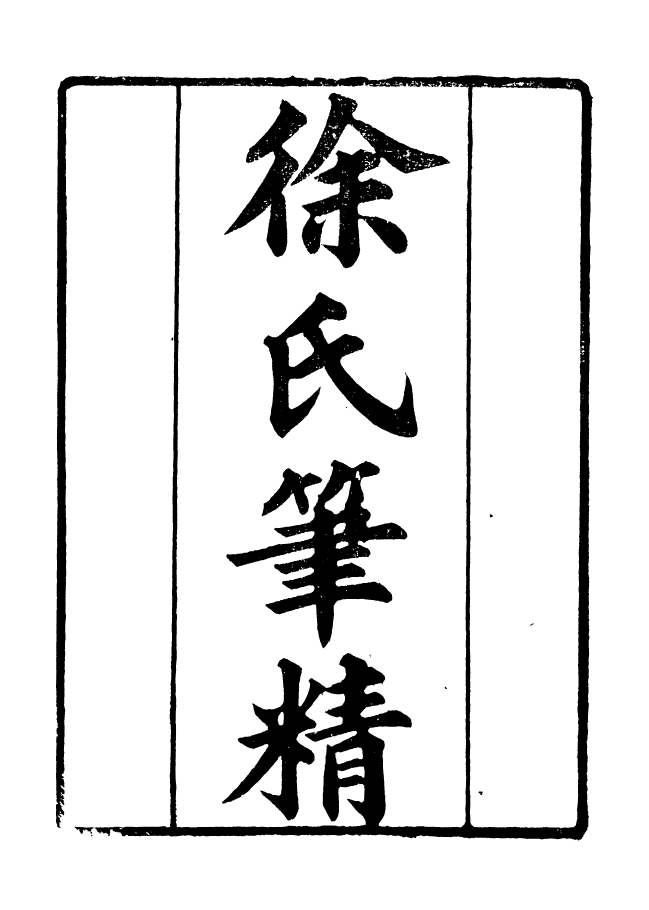 徐氏筆精